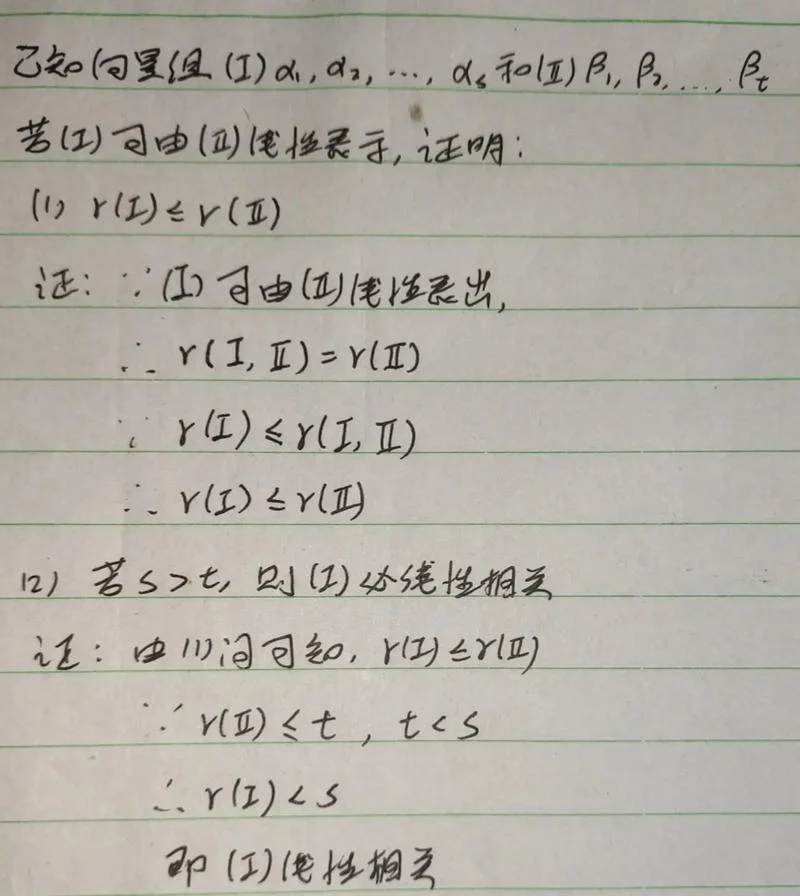 已知向量组(I) α₁, α₂, …, αₛ 和(Ⅱ) β₁, β₂, …, βₜ
若(I)可由(Ⅱ)线性表示, 证明:
(1) r(I)≤r(Ⅱ)
证: ∵(I)可由(Ⅱ)线性表出,
∴ r(I, Ⅱ)=r(Ⅱ)
∵ r(I)≤r(I, Ⅱ)
∴ r(I)≤r(Ⅱ)
(2) 若s>t, 则(I)必线性相关
证: 由(1)问可知, r(I)≤r(Ⅱ)
∵ r(Ⅱ)≤t, t<s
∴ r(I)<s
即(I)线性相关